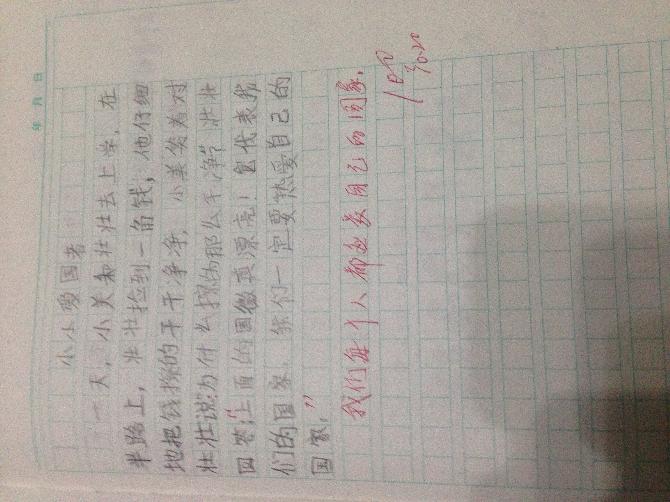 年 月 日
小小爱国者
一天，小美和壮壮去上学，在
半路上，壮壮捡到一角钱，他仔细
地把钱擦的干干净净，小美笑着对
壮壮说为什么擦的那么干净”壮壮
回答：“上面的国徽真漂亮！它代表我
们的国家，我们一定要热爱自己的
国家。”
我们每个人都应爱自己的国家。
100